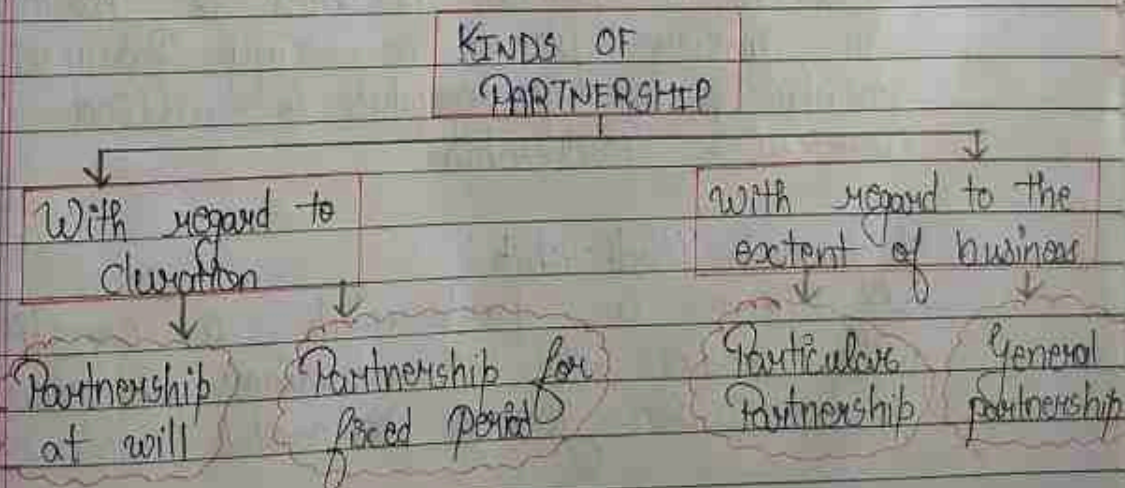 KINDS OF
PARTNERSHIP
With regard to
duration
With regard to the
extent of business
Partnership
at will
Partnership for
fixed period
Particular
Partnership
General
partnership